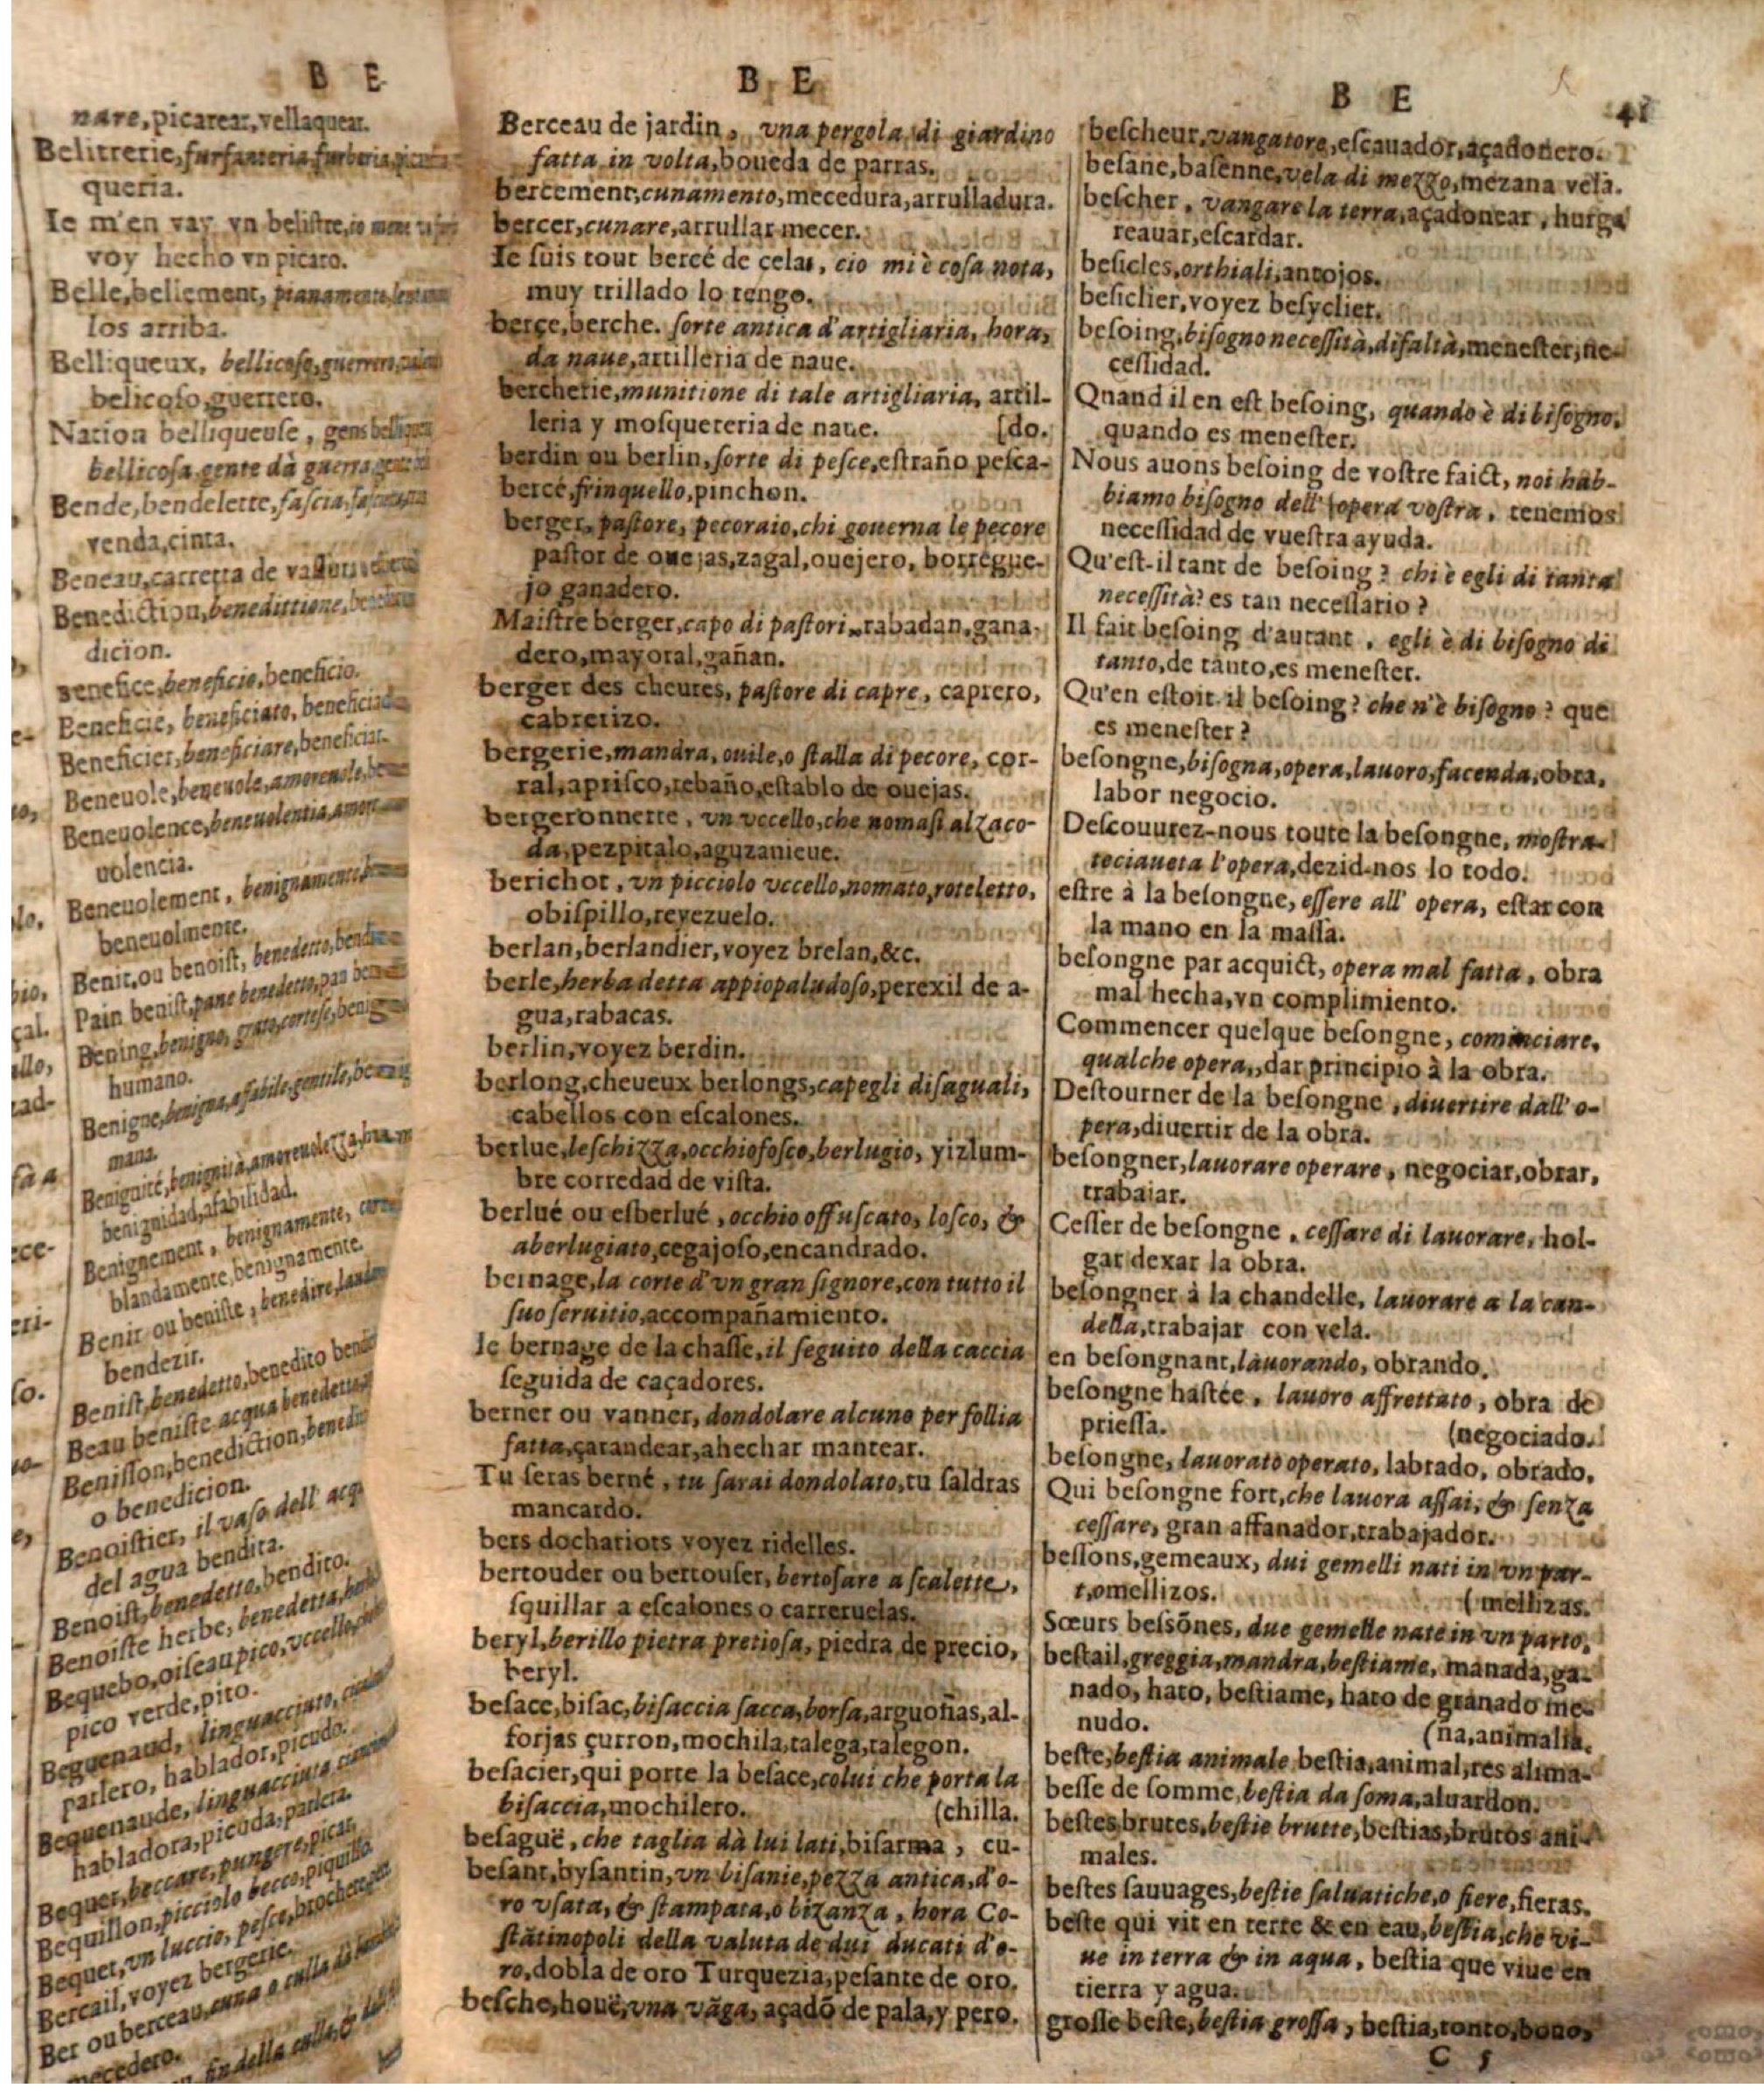 B E
nare, picarear, vellaquear.
Belitrerie, furfanteria furberia,
queria.
Ie m'en vay vn belistre, io
voy hecho vn picaro.
Belle, bellement, pianamente,
los arriba.
Belliqueux, bellicoso, guerrero,
belicoso, guerrero.
Nation belliqueuse, gens
bellicosa, gente dà guerra,
Bende, bendelette, fascia,
venda, cinta.
Beneau, carretta de
Benediction, benedittione,
dicion.
Benefice, beneficio, beneficio.
Beneficié, beneficiato, beneficiado
Beneficier, beneficiare, beneficiar.
Beneuole, beneuole, amoreuole,
Beneuolence, beneuolentia,
uolencia.
Beneuolement, benignamente,
beneuolmente.
Benit, ou benoist, benedetto,
Pain benist, pane benedetto, pan
Bening, benigno, grato, cortese,
humano.
Benigne, benigna, afabile, gentile,
mana.
Benignité, benignità, amoreuolezza,
benignidad, afabilidad.
Benignement, benignamente,
blandamente, benignamente.
Benir ou beniste, benedire,
bendezir.
Benist, benedetto, benedito
Beau beniste acqua benedetta,
Benisson, benediction,
o benedicion.
Benoistier, il vaso dell'
del agua bendita.
Benoist, benedetto, bendito.
Benoiste herbe, benedetta,
Bequebo, oiseau pico, vccello,
pico verde, pito.
Beguenaud, linguacciuto,
parlero, hablador, picudo.
Bequenaude, linguacciuta
habladora, picuda, parlera.
Bequer, beccare, pungere, picar.
Bequillon, picciolo becco, piquillo.
Bequet, vn luccio, pesce,
Bercail, voyez bergerie.
Ber ou berceau, cuna o culla
mecedero.
B E
Berceau de jardin, vna pergola di giardino
fatta in volta, boueda de parras.
bercement, cunamento, mecedura, arrulladura.
bercer, cunare, arrullar mecer.
Ie suis tout bercé de cela, cio mi è cosa nota,
muy trillado lo tengo.
berçe, berche. sorte antica d'artigliaria, hora,
da naue, artilleria de naue.
bercherie, munitione di tale artigliaria, artil-
leria y mosqueteria de naue. [do.
berdin ou berlin, sorte di pesce, estraño pesca-
bercé, frinquello, pinchon.
berger, pastore, pecoraio, chi gouerna le pecore
pastor de ouejas, zagal, ouejero, borregue-
jo ganadero.
Maistre berger, capo di pastori, rabadan, gana-
dero, mayoral, gañan.
berger des cheures, pastore di capre, caprero,
cabrerizo.
bergerie, mandra, ouile, o stalla di pecore, cor-
ral, aprisco, rebaño, establo de ouejas.
bergeronnerre, vn vccello, che nomasi alzaco-
da, pezpitalo, aguzanieue.
berichot, vn picciolo vccello, nomato, roteletto,
obispillo, reyezuelo.
berlan, berlandier, voyez brelan, &c.
berle, herba detta appiopaludoso, perexil de a-
gua, rabacas.
berlin, voyez berdin.
berlong, cheueux berlongs, capegli disaguali,
cabellos con escalones.
berlue, leschizza, occhiofosco, berlugio, vizlum-
bre corredad de vista.
berlué ou esberlué, occhio offuscato, losco, &
aberlugiato, cegajoso, encandrado.
bernage, la corte d'vn gran signore, con tutto il
suo seruitio, accompañamiento.
le bernage de la chasse, il seguito della caccia
seguida de caçadores.
berner ou vanner, dondolare alcuno per follia
fatta, çarandear, ahechar mantear.
Tu seras berné, tu sarai dondolato, tu saldras
mancardo.
bers dochariots voyez ridelles.
bertouder ou bertouser, bertosare a scalette,
squillar a escalones o carreruelas.
beryl, berillo pietra pretiosa, piedra de precio,
beryl.
besace, bisac, bisaccia sacca, borsa, arguoñas, al-
forjas çurron, mochila, talega, talegon.
besacier, qui porte la besace, colui che porta la
bisaccia, mochilero. (chilla.
besaguë, che taglia dà lui lati, bisarma, cu-
besant, bysantin, vn bisanie, pezza antica, d'o-
ro vsata, & stampata, o bizanza, hora Co-
stãtinopoli della valuta de dui ducati d'o-
ro, dobla de oro Turquezia, pesante de oro.
besche, houë, vna vãga, açadõ de pala, y pero.
B E 41
bescheur, vangatore, escauador, açadonero.
besane, basenne, vela di mezzo, mezana vela.
bescher, vangare la terra, açadonear, hurga
reauar, escardar.
besicles, orthiali, antojos.
besiclier, voyez besyclier.
besoing, bisogno necessità, disaltà, menester, ne-
cessidad.
Quand il en est besoing, quando è di bisogno,
quando es menester.
Nous auons besoing de vostre faict, noi hab-
biamo bisogno dell' opera vostra, tenemos
necessidad de vuestra ayuda.
Qu'est-il tant de besoing? chi è egli di tanta
necessità? es tan necessario?
Il fait besoing d'autant, egli è di bisogno di
tanto, de tanto, es menester.
Qu'en estoit il besoing? che n'è bisogno? que
es menester?
besongne, bisogna, opera, lauoro, facenda, obra,
labor negocio.
Descouurez-nous toute la besongne, mostra-
teciaueta l'opera, dezid-nos lo todo.
estre à la besongne, essere all' opera, estar con
la mano en la massa.
besongne par acquict, opera mal fatta, obra
mal hecha, vn complimiento.
Commencer quelque besongne, cominciare,
qualche opera,, dar principio à la obra.
Destourner de la besongne, diuertire dall' o-
pera, diuertir de la obra.
besongner, lauorare operare, negociar, obrar,
trabaiar.
Cesser de besongne, cessare di lauorare, hol-
gar dexar la obra.
besongner à la chandelle, lauorare a la can-
della, trabajar con vela.
en besongnant, lauorando, obrando.
besongne hastée, lauoro affrettato, obra de
priessa. (negociado.
besongne, lauorato operato, labrado, obrado,
Qui besongne fort, che lauora assai, & senza
cessare, gran affanador, trabajador.
bessons, gemeaux, dui gemelli nati in vn par-
t, omellizos. (mellizas.
Sœurs bessõnes, due gemelle nate in vn parto,
bestail, greggia, mandra, bestiame, manada, ga-
nado, hato, bestiame, hato de granado me-
nudo. (ña, animalia.
beste, bestia animale bestia, animal, res alima-
besse de somme, bestia da soma, aluardon.
bestes brutes, bestie brutte, bestias, brutos ani-
males.
bestes sauuages, bestie saluatiche, o fiere, fieras.
beste qui vit en terre & en eau, bestia, che vi-
ue in terra & in aqua, bestia que viue en
tierra y agua.
grosse beste, bestia grossa, bestia, tonto, bouo,
C 5